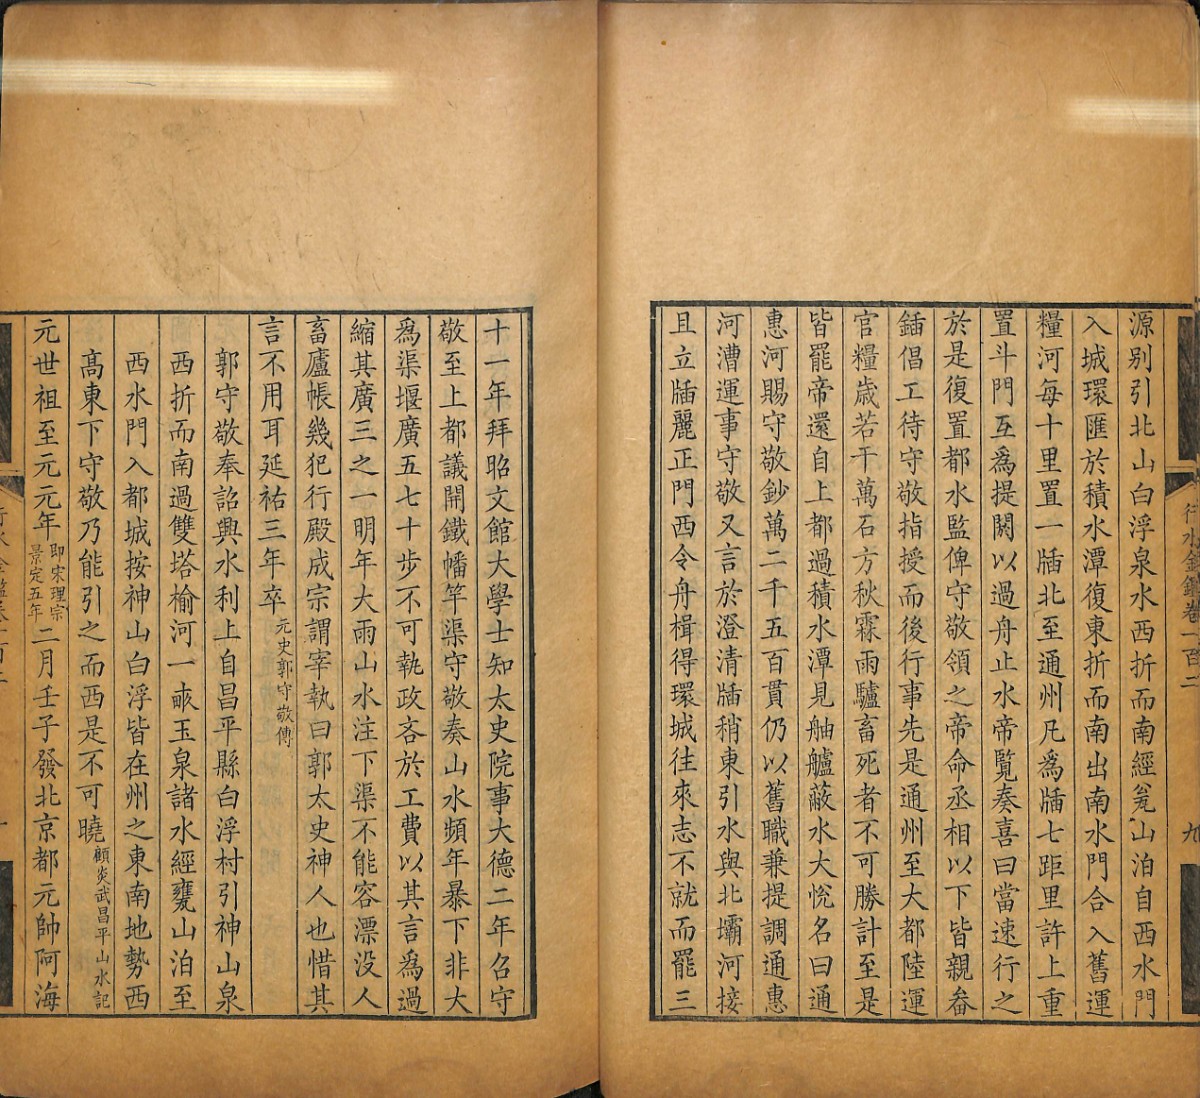 源别引北山白浮泉水西折而南經瓮山泊自西水門
入城環匯於積水潭復東折而南出南水門合入舊運
糧河每十里置一牐北至通州凡爲牐七距里許上重
置斗門互爲提閼以過舟止水帝覽奏喜曰當速行之
於是復置都水監俾守敬領之帝命丞相以下皆親畚
鍤倡工待守敬指授而後行事先是通州至大都陸運
官糧歲若干萬石方秋霖雨驢畜死者不可勝計至是
皆罷帝還自上都過積水潭見舳艫蔽水大悅名曰通
惠河賜守敬鈔萬二千五百貫仍以舊職兼提調通惠
河漕運事守敬又言於澄清牐稍東引水與北壩河接
且立牐麗正門西令舟楫得環城往來志不就而罷三
行水金鑑卷一百二
九
十一年拜昭文館大學士知太史院事大德二年召守
敬至上都議開鐵幡竿渠守敬奏山水頻年暴下非大
爲渠堰廣五七十步不可執政吝於工費以其言爲過
縮其廣三之一明年大雨山水注下渠不能容漂没人
畜廬帳幾犯行殿成宗謂宰執曰郭太史神人也惜其
言不用耳延祐三年卒元史郭守敬傳
郭守敬奉詔興水利上自昌平縣白浮村引神山泉
西折而南過雙塔榆河一畝玉泉諸水經甕山泊至
西水門入都城按神山白浮皆在州之東南地勢西
高東下守敬乃能引之而西是不可曉顧炎武昌平山水記
元世祖至元元年即宋理宗景定五年二月壬子發北京都元帥阿海